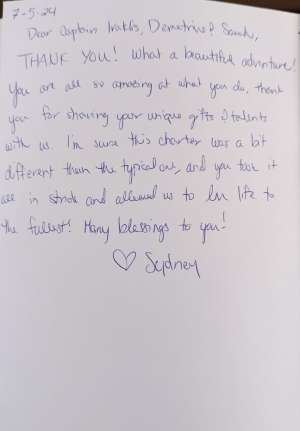 7-5-24
Dear Captain Iraklis, Demetrius & Sandy,
THANK YOU! What a beautiful adventure!
You are all so amazing at what you do. Thank
you for sharing your unique gifts & talents
with us. I'm sure this charter was a bit
different than the typical one, and you took it
all in stride and allowed us to live life to
the fullest! Many blessings to you!
♡ Sydney